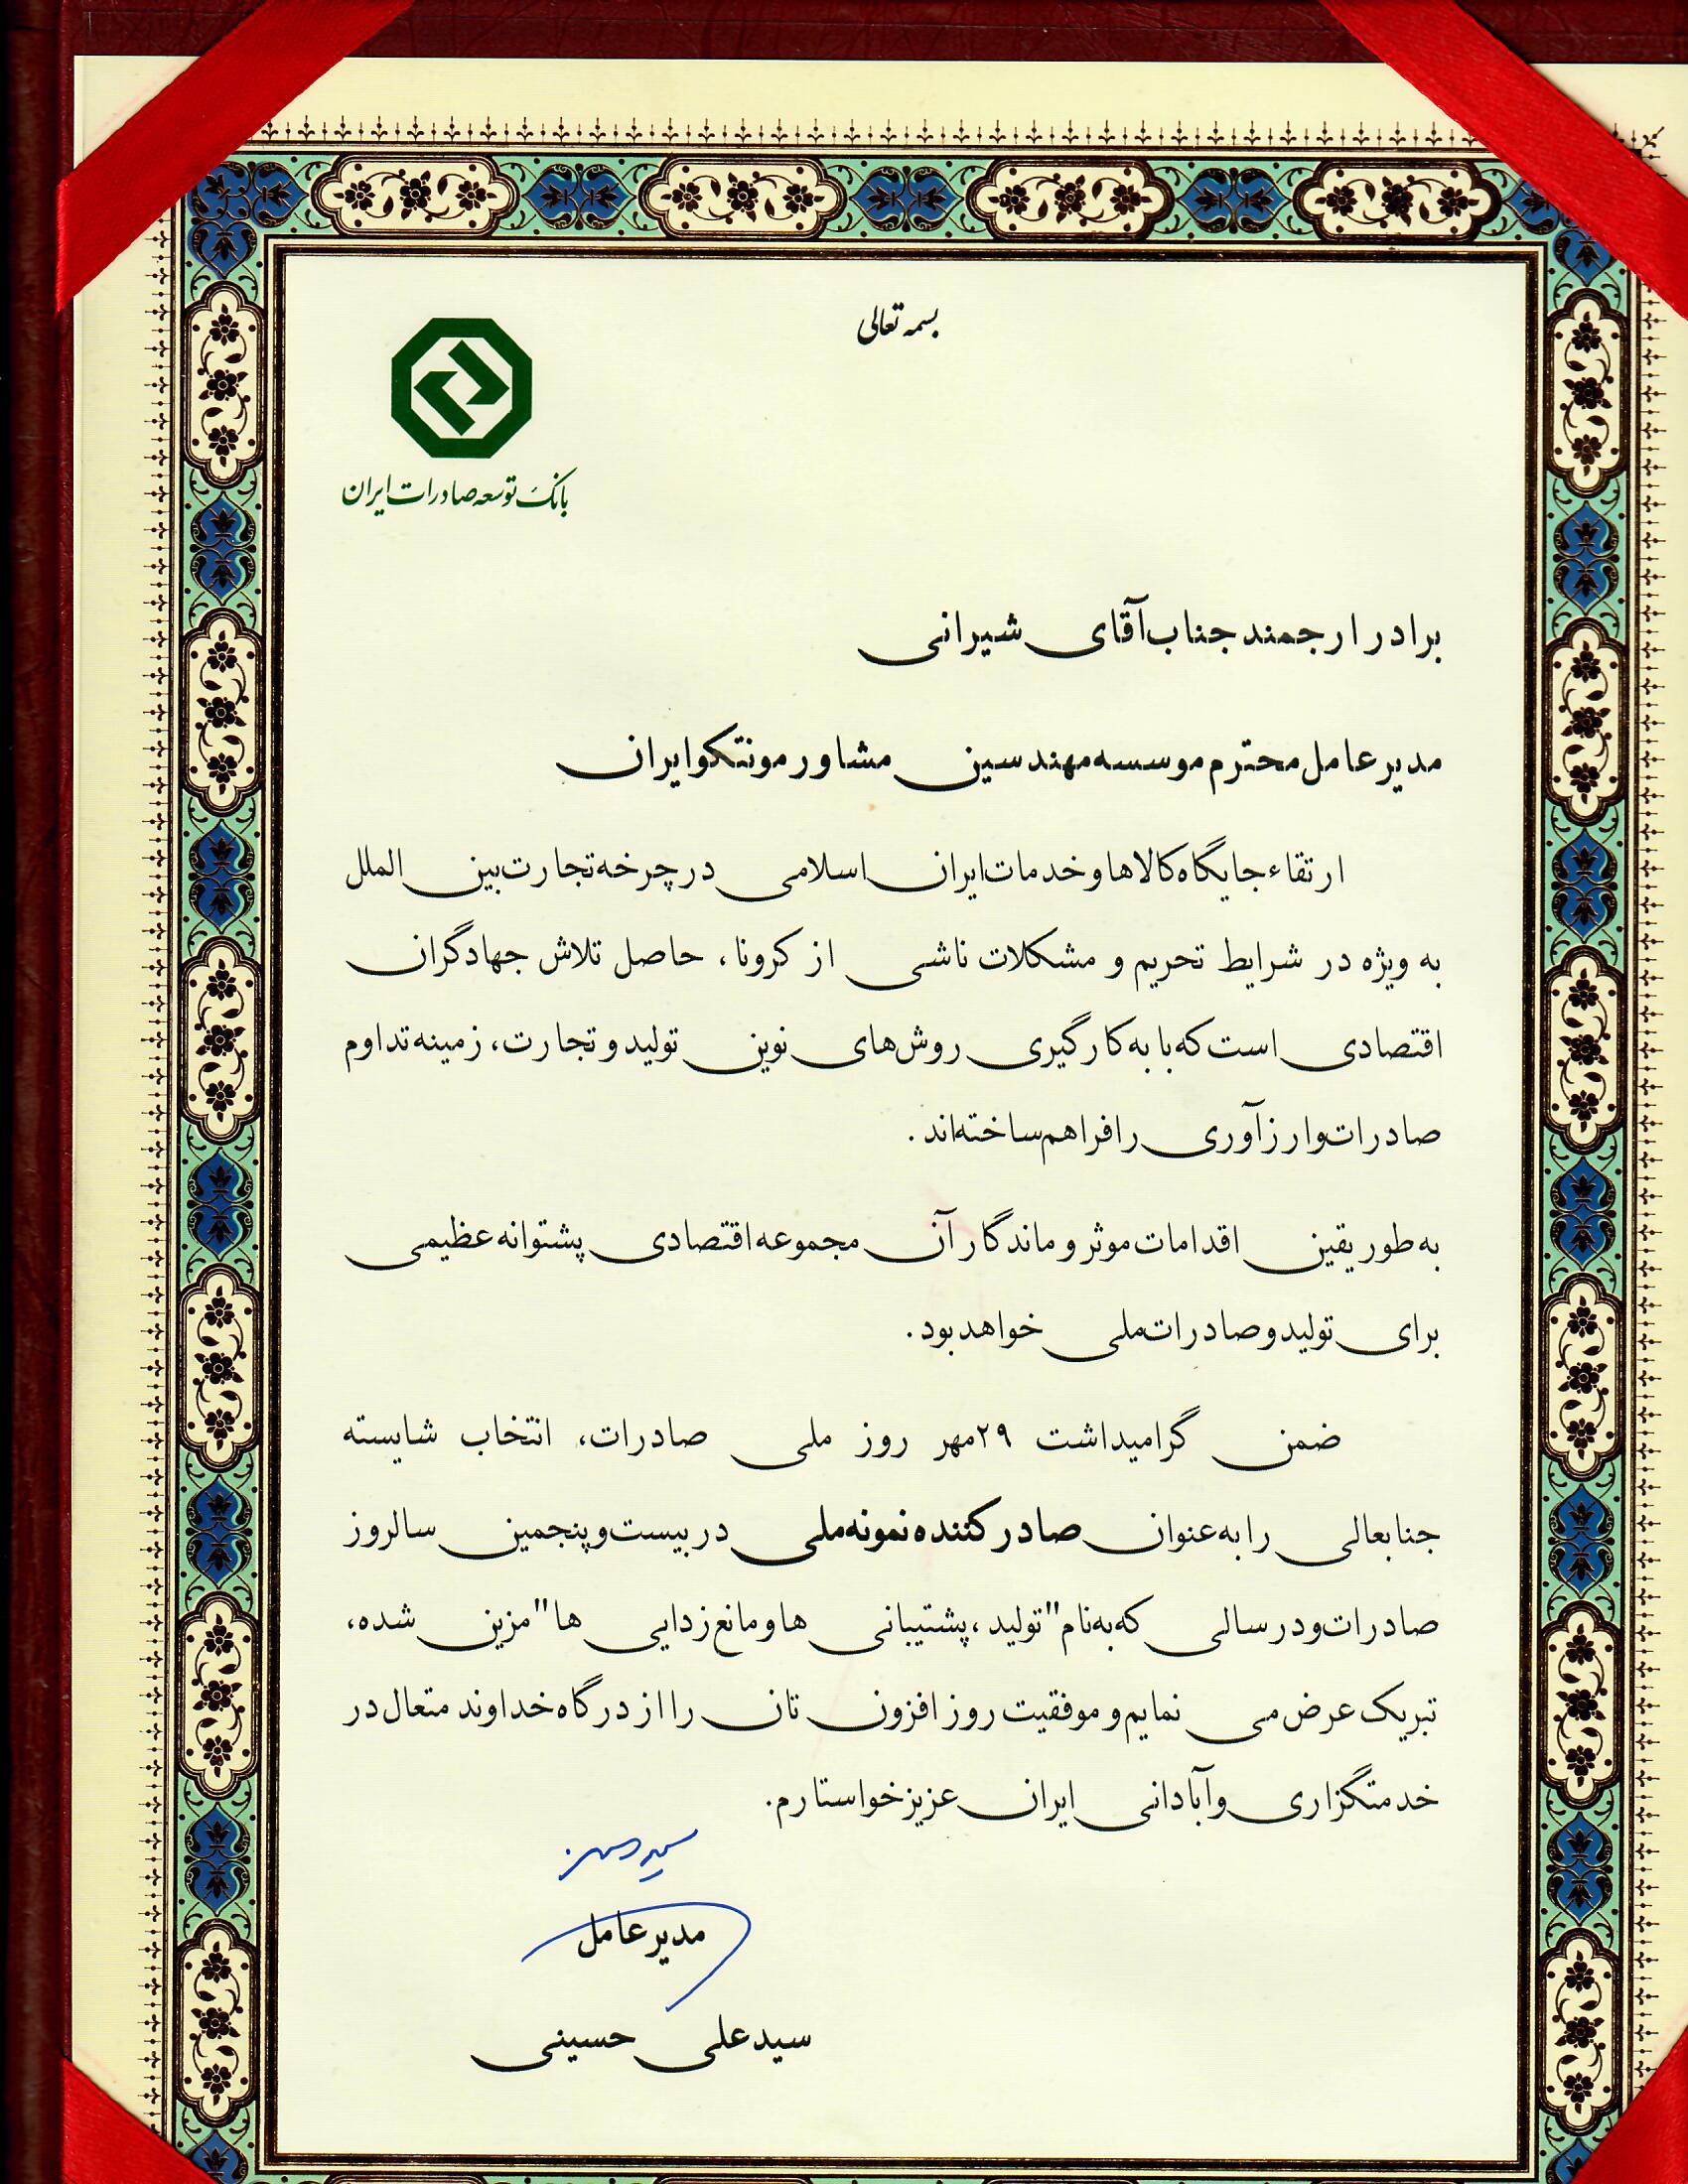 بسمه تعالی
بانک توسعه صادرات ایران
برادر ارجمند جناب آقای شیرانی
مدیرعامل محترم موسسه مهندسین مشاور مونتکو ایران
ارتقاء جایگاه کالاها و خدمات ایران اسلامی در چرخه تجارت بین الملل
به ویژه در شرایط تحریم و مشکلات ناشی از کرونا، حاصل تلاش جهادگران
اقتصادی است که با به کارگیری روش‌های نوین تولید و تجارت، زمینه تداوم
صادرات و ارزآوری را فراهم ساخته‌اند.
به طور یقین اقدامات موثر و ماندگار آن مجموعه اقتصادی پشتوانه عظیمی
برای تولید و صادرات ملی خواهد بود.
ضمن گرامیداشت ۲۹مهر روز ملی صادرات، انتخاب شایسته
جنابعالی را به عنوان صادرکننده نمونه ملی در بیست و پنجمین سالروز
صادرات و در سالی که به نام "تولید، پشتیبانی ها و مانع زدایی ها" مزین شده،
تبریک عرض می نمایم و موفقیت روز افزون تان را از درگاه خداوند متعال در
خدمتگزاری و آبادانی ایران عزیز خواستارم.
مدیرعامل
سیدعلی حسینی